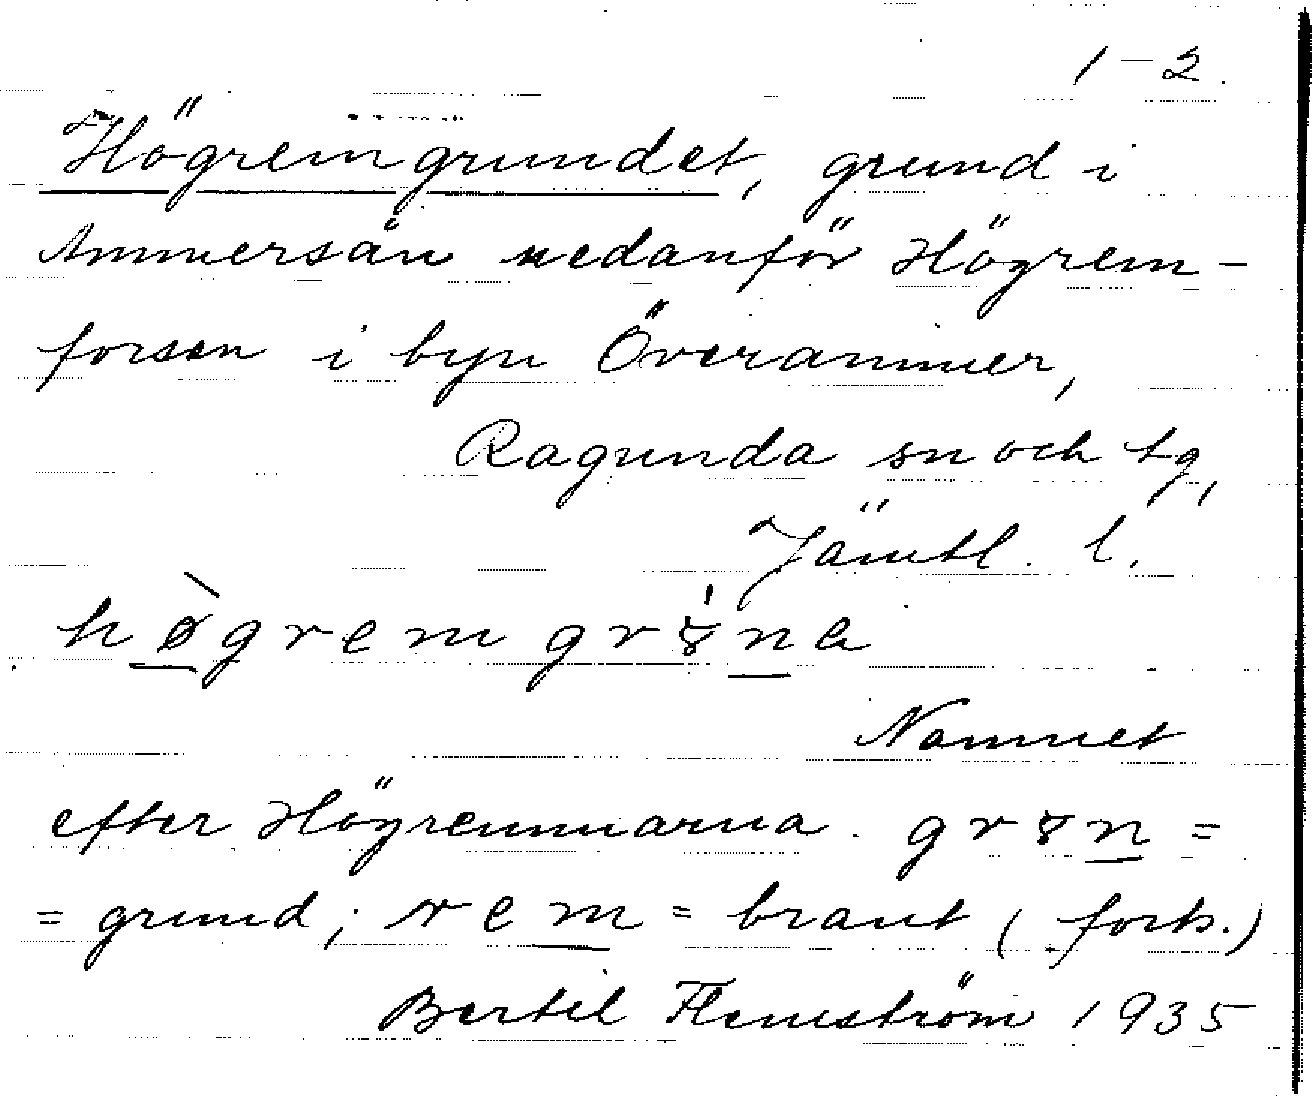 1-2.
Högremgrundet, grund i
Ammersån nedanför Högrem-
forsen i byn Överammer,
Ragunda sn och tg,
Jämtl. l.
høgrem gr8na
Namnet
efter Högremmarna. gr8n =
= grund; rem = brant (forts.)
Bertil Flemström 1935